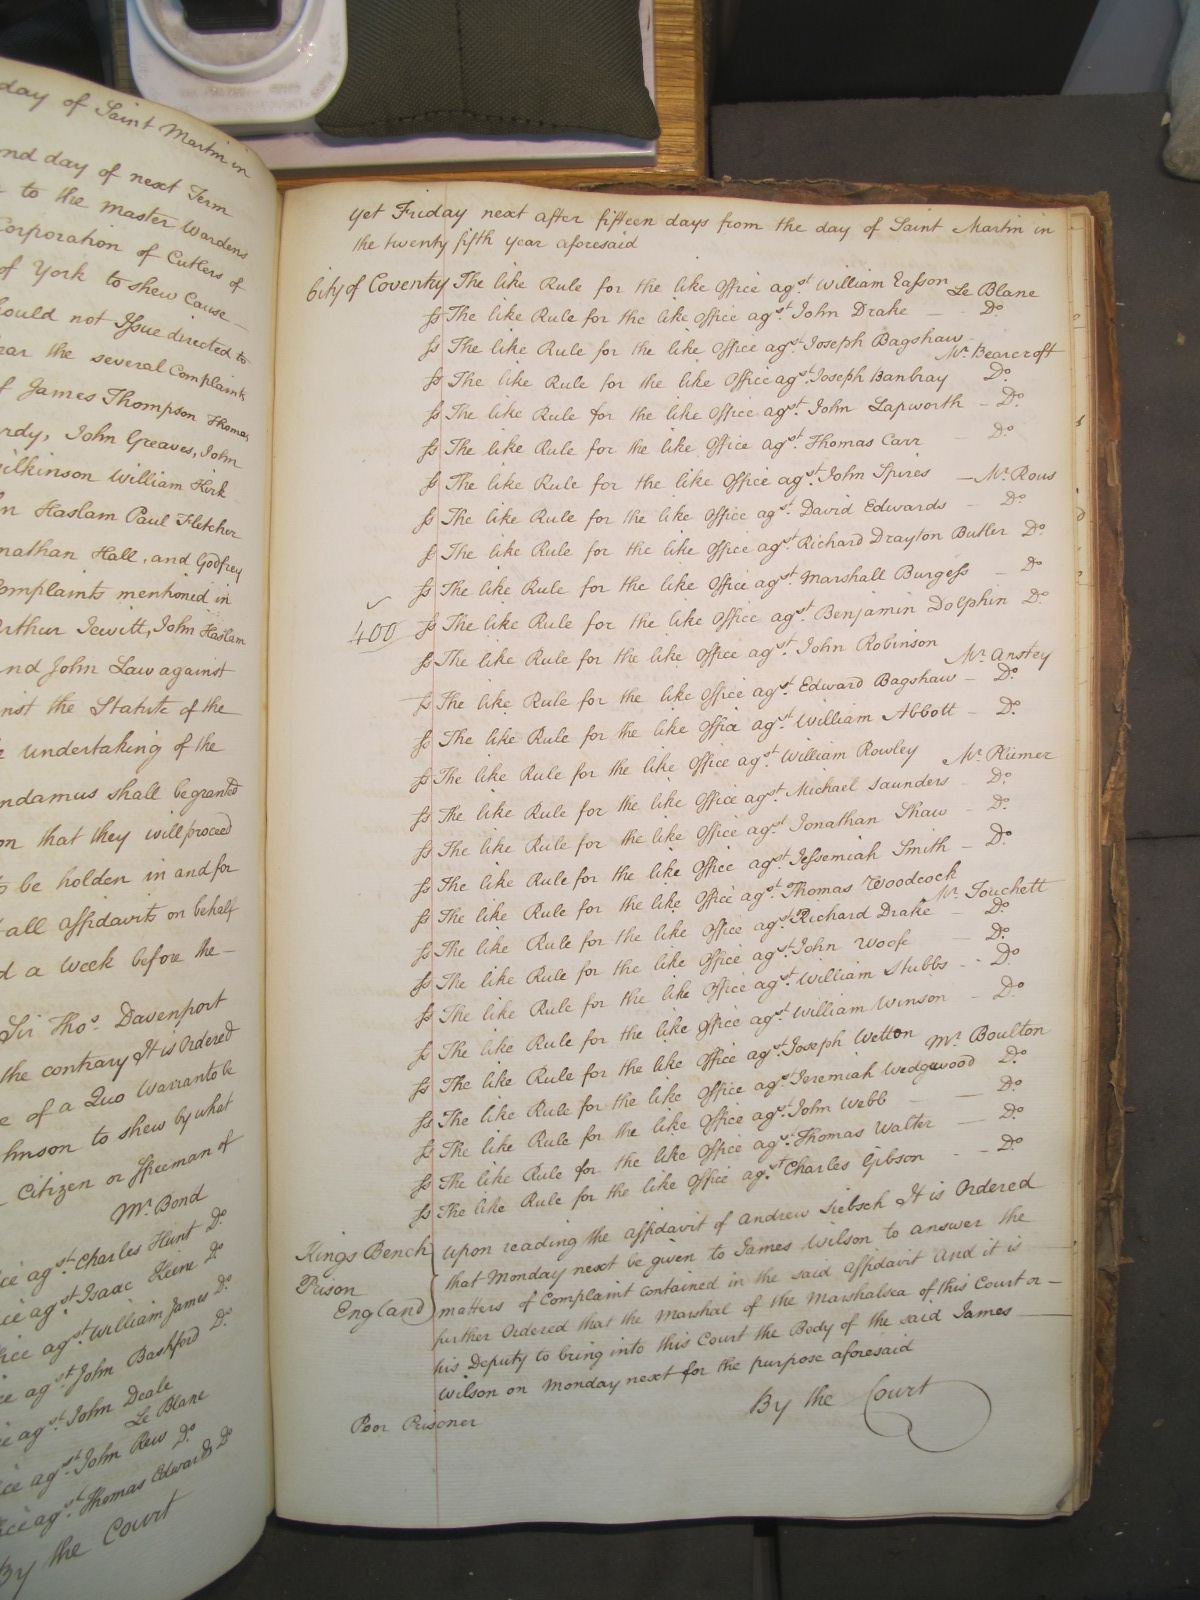 day of Saint Martin in
nd day of next Term
to the Master Wardens
Corporation of Cutlers of
of York to shew Cause
ould not Issue directed to
ear the several Complaints
f James Thompson Thomas
rdy, John Greaves, John
ilkinson William Hirk
n Haslam Paul Fletcher
nathan Hall, and Godfrey
omplaints mentioned in
rthur Jewitt, John Haslam
and John Law against
inst the Statute of the
e undertaking of the
ndamus shall be granted
on that they will proceed
to be holden in and for
all affidavits on behalf
d a Week before the
Sir Thos. Davenport
the contrary It is Ordered
e of a Quo Warranto be
hnson to shew by what
Citizen or ffreeman of
Mr. Bond
ice agst. Charles Hunt Do
ice agst. Isaac Keene Do
ice agst. William James Do
ce agst. John Bashford Do
ce agst. John Deale
Le Blane
ice agst. John Rew Do
ice agst. Thomas Edwards Do
By the Court
yet Friday next after fifteen days from the day of Saint Martin in
the twenty fifth year aforesaid
City of Coventry The like Rule for the like Office agst. William Easson Le Blane
ss The like Rule for the like Office agst. John Drake — Do
ss The like Rule for the like Office agst. Joseph Bagshaw
Mr. Bearcroft
ss The like Rule for the like Office agst. Joseph Banbray Do
ss The like Rule for the like Office agst. John Lapworth - Do
ss The like Rule for the like Office agst. Thomas Carr Do
ss The like Rule for the like Office agst. John Spires — Mr. Rous
ss The like Rule for the like Office agst. David Edwards - Do
ss The like Rule for the like Office agst. Richard Drayton Butler Do
ss The like Rule for the like Office agst. Marshall Burgess - Do
400 ss The like Rule for the like Office agst. Benjamin Dolphin Do
ss The like Rule for the like Office agst. John Robinson
Mr. Anstey
ss The like Rule for the like Office agst. Edward Bagshaw - Do
ss The like Rule for the like Office agst. William Abbott - Do
ss The like Rule for the like Office agst. William Rowley Mr. Rümer
ss The like Rule for the like Office agst. Michael Saunders - Do
ss The like Rule for the like Office agst. Jonathan Shaw - Do
ss The like Rule for the like Office agst. Jessemiah Smith - Do
ss The like Rule for the like Office agst. Thomas Woodcock
Mr. Touchett
ss The like Rule for the like Office agst. Richard Drake - Do
ss The like Rule for the like Office agst. John Woofe — Do
ss The like Rule for the like Office agst. William Stubbs - Do
ss The like Rule for the like Office agst. William Winson - Do
ss The like Rule for the like Office agst. Joseph Wetton Mr. Boulton
ss The like Rule for the like Office agst. Jeremiah Wedgewood Do
ss The like Rule for the like Office agst. John Webb — — Do
ss The like Rule for the like Office agst. Thomas Walter — Do
ss The like Rule for the like Office agst. Charles Gibson - - Do
Kings Bench Prison England
Upon reading the affidavit of Andrew Siebsch It is Ordered
that Monday next be given to James Wilson to answer the
matters of Complaint contained in the said affidavit And it is
further Ordered that the Marshal of the Marshalsea of this Court or
his Deputy to bring into this Court the Body of the said James
Wilson on Monday next for the purpose aforesaid
Poor Prisoner By the Court